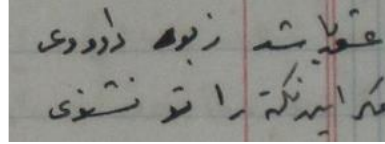 عشق باشد زبور داوودی
مگر این نکته را تو نشنودی